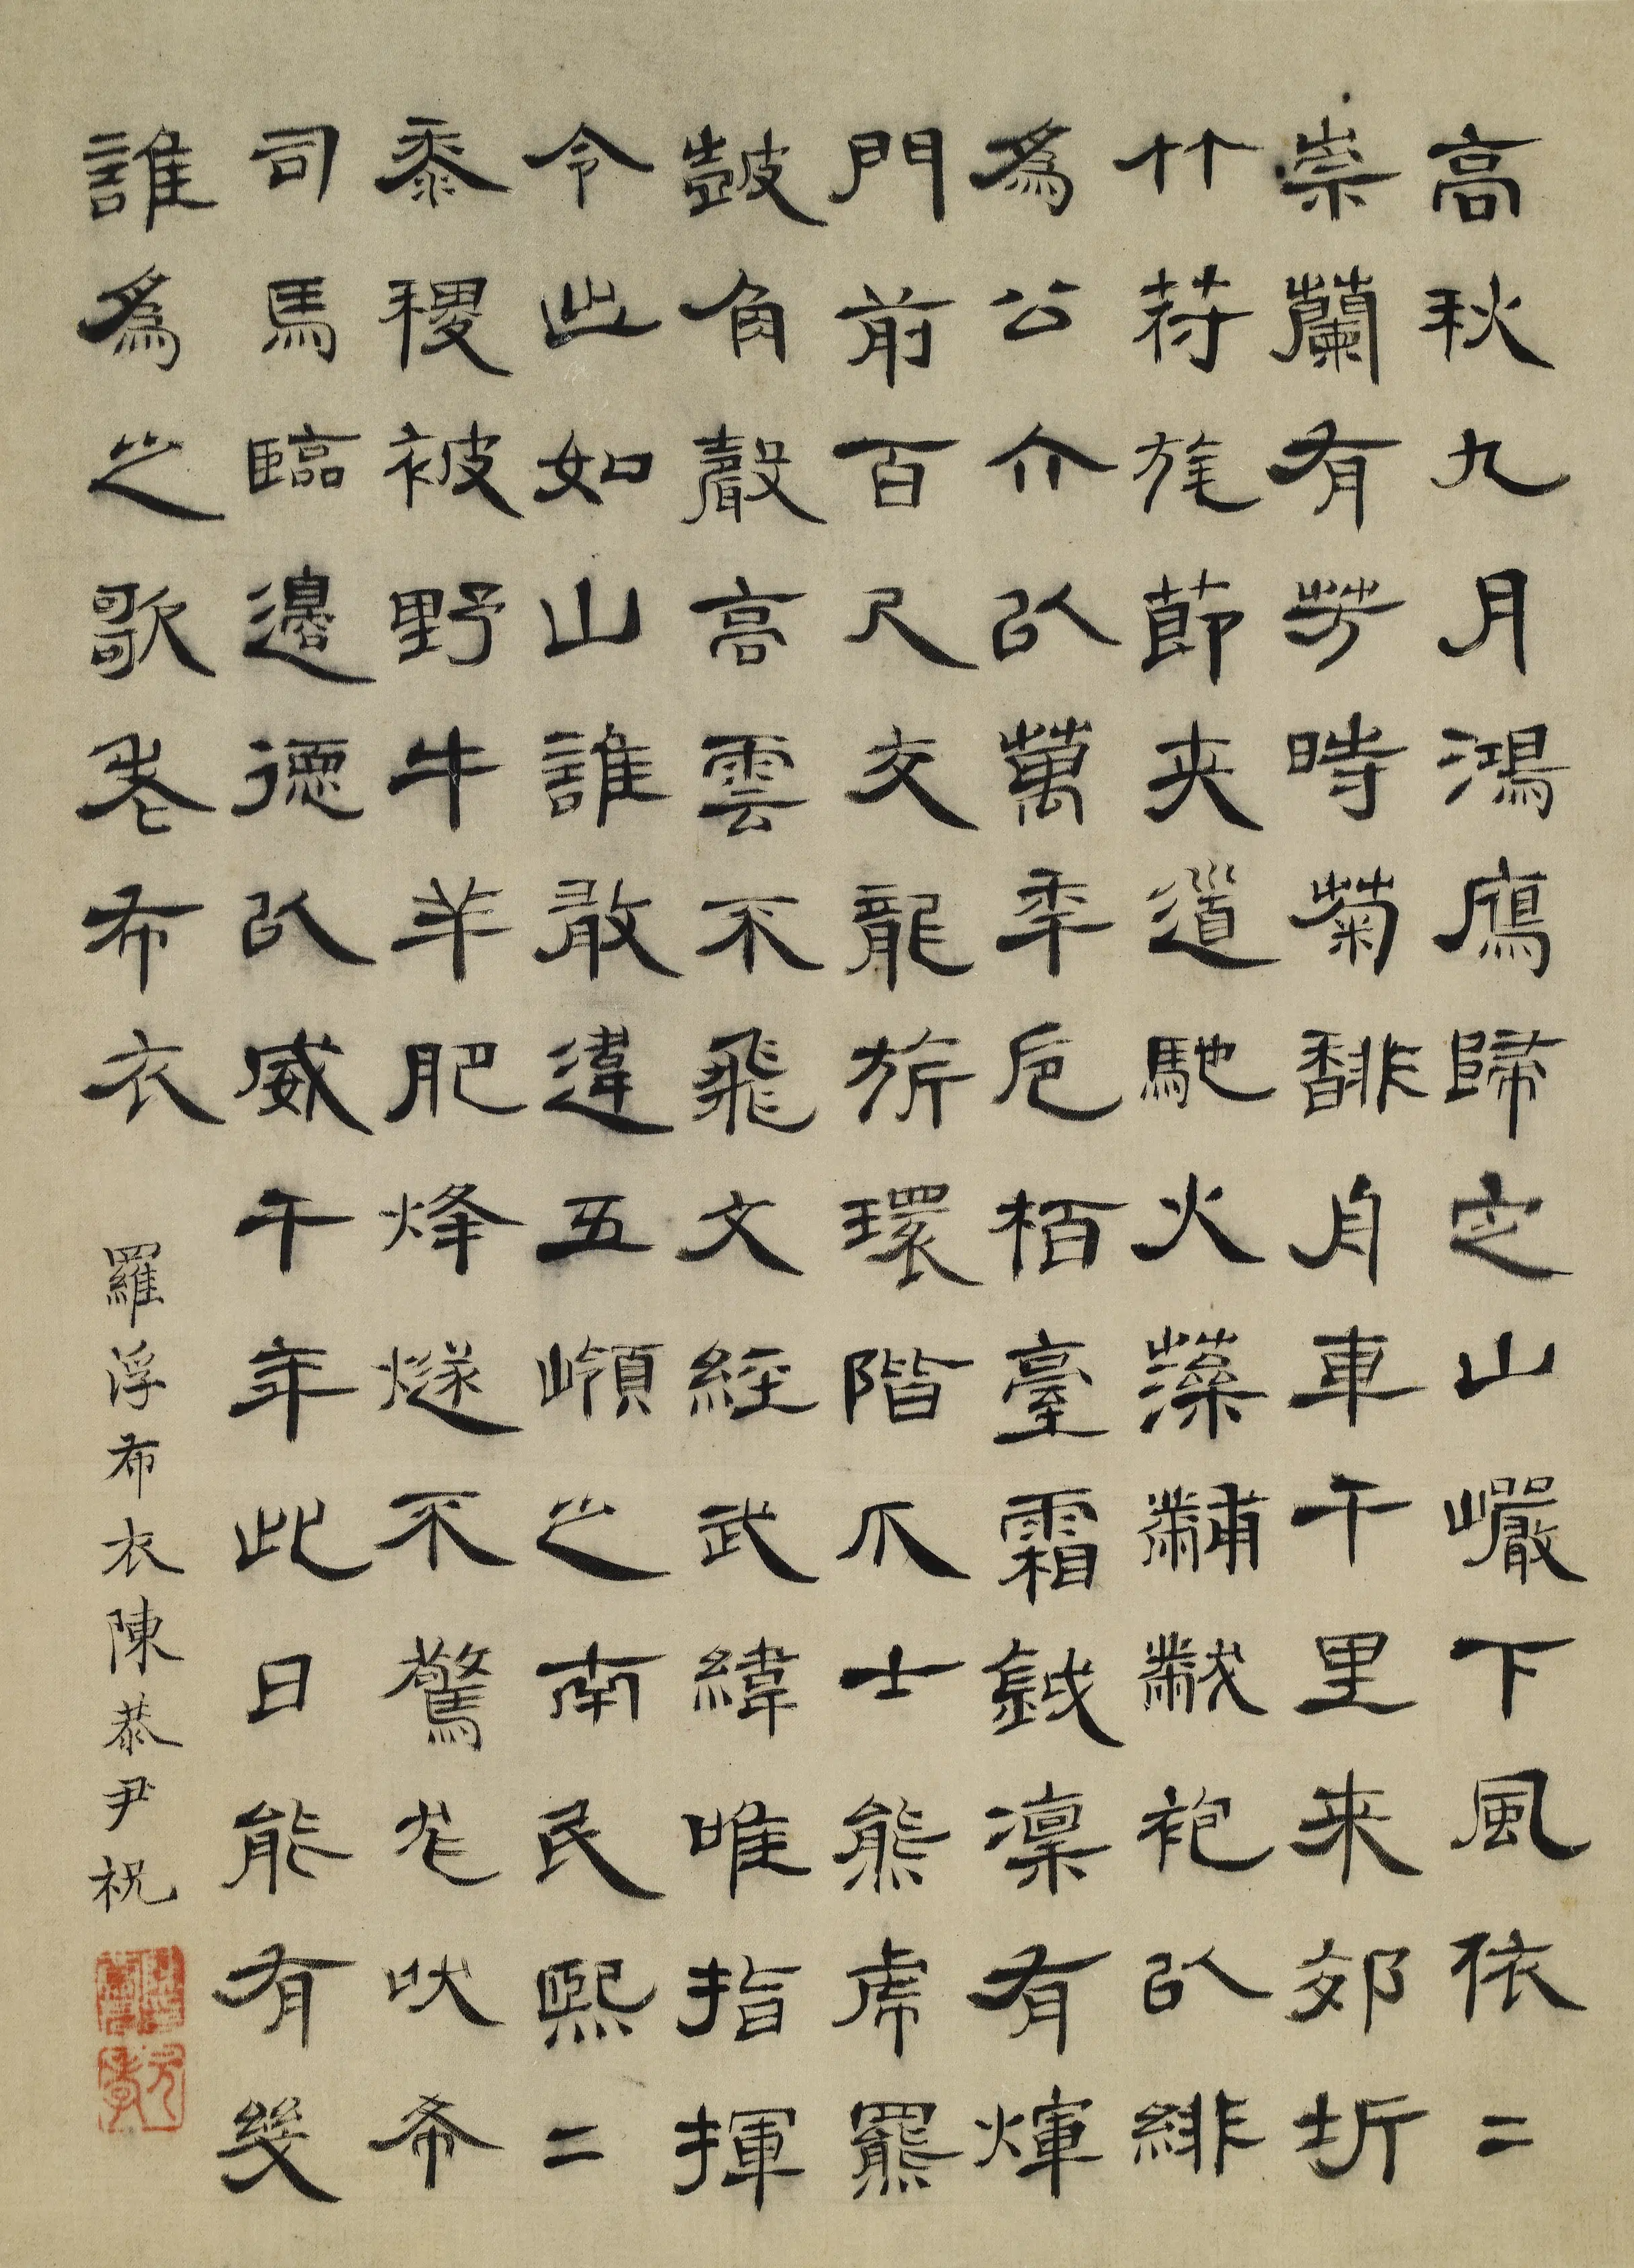 高秋九月鴻鴈歸定山巖下風依二
崇蘭有芳時菊馡舟車千里来郊圻
竹符旄節夾道馳火藻黼黻袍以緋
為公介以萬年卮栢臺霜鉞凜有煇
門前百尺交龍旂環階爪士熊虎羆
鼓角聲高雲不飛文經武緯唯指揮
令出如山誰敢違五嶺之南民熙二
黍稷被野牛羊肥烽燧不驚尨吠希
司馬臨邊德以威千年此日能有幾
誰為之歌老布衣
羅浮布衣陳恭尹祝
元孝